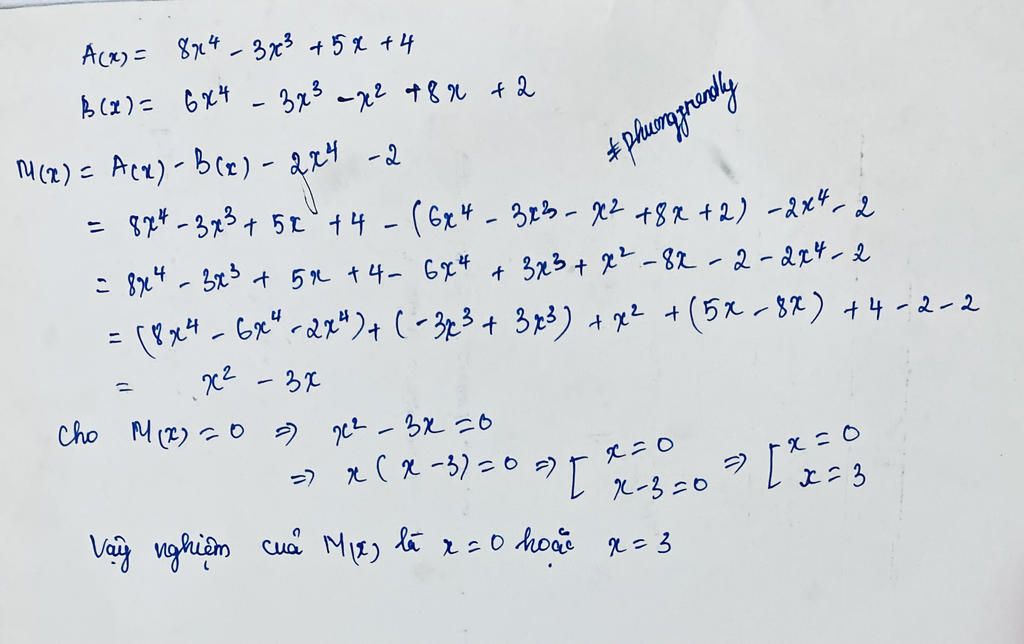 A(x) = 8x⁴ - 3x³ + 5x + 4
B(x) = 6x⁴ - 3x³ - x² + 8x + 2
#phuongfriendly
M(x) = A(x) - B(x) - 2x⁴ - 2
= 8x⁴ - 3x³ + 5x + 4 - (6x⁴ - 3x³ - x² + 8x + 2) - 2x⁴ - 2
= 8x⁴ - 3x³ + 5x + 4 - 6x⁴ + 3x³ + x² - 8x - 2 - 2x⁴ - 2
= (8x⁴ - 6x⁴ - 2x⁴) + (-3x³ + 3x³) + x² + (5x - 8x) + 4 - 2 - 2
= x² - 3x
Cho M(x) = 0 ⇒ x² - 3x = 0
⇒ x(x - 3) = 0 ⇒ [ x = 0 ⇒ [ x = 0
x - 3 = 0 x = 3
Vậy nghiệm của M(x) là x = 0 hoặc x = 3